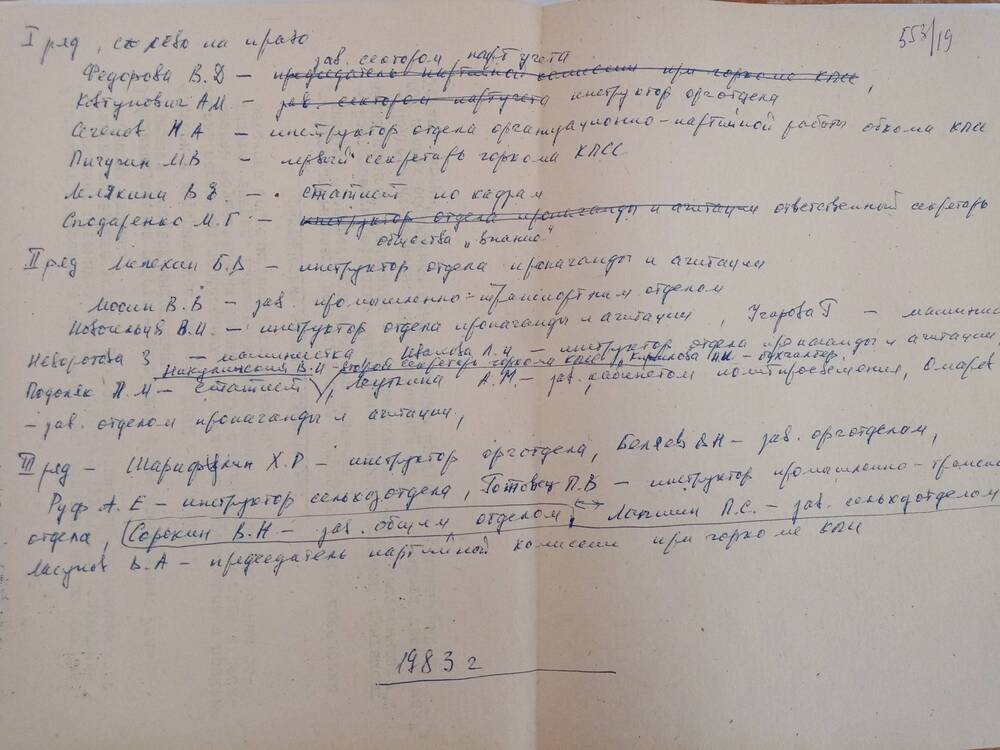 553/19
I ряд, слево на право
зав. сектором парт учета
Федорова В.Д – председатель партийной комиссии при горкоме КПСС,
Ковтунович А.М. – зав. сектором партучета инструктор орготдела
Сеченов Н.А – инструктор отдела организационно-партийной работы обкома КПСС
Пичугин М.В – первый секретарь горкома КПСС
Мелякина В – статист по кадрам
Сподаренко М.Г – инструктор отдела пропаганды и агитации ответственной секретарь
общества „Знание"
II ряд Мележин Б.В – инструктор отдела пропаганды и агитации
Мосин В.В – зав. промышленно-транспортным отделом
Новосильцев В.И. – инструктор отдела пропаганды и агитации, Угарова Г – машинис
Неворотова З – машинистка Иванова Л.Н – инструктор отдела пропаганды и агитации,
Никулинский В.И – второй секретарь горкома КПСС, Кириллова – бухгалтер,
Подоляк Н.М – статист, А.М. – зав. кабинетом политпросвещения, Омаров
– зав. отделом пропаганды и агитации,
III ряд – Х.Р. – инструктор орготдела, Беляев В.Н – зав. орготделом,
Руф А.Е – инструктор сельхозотдела, Готовец П.В – инструктор промышленно-трансп
отдела, Сорокин В.Н – зав. общим отделом, Лапшин П.С. – зав. сельхозотделом
Ласунов В.А – председатель партийной комиссии при горкоме КПСС
1983 г